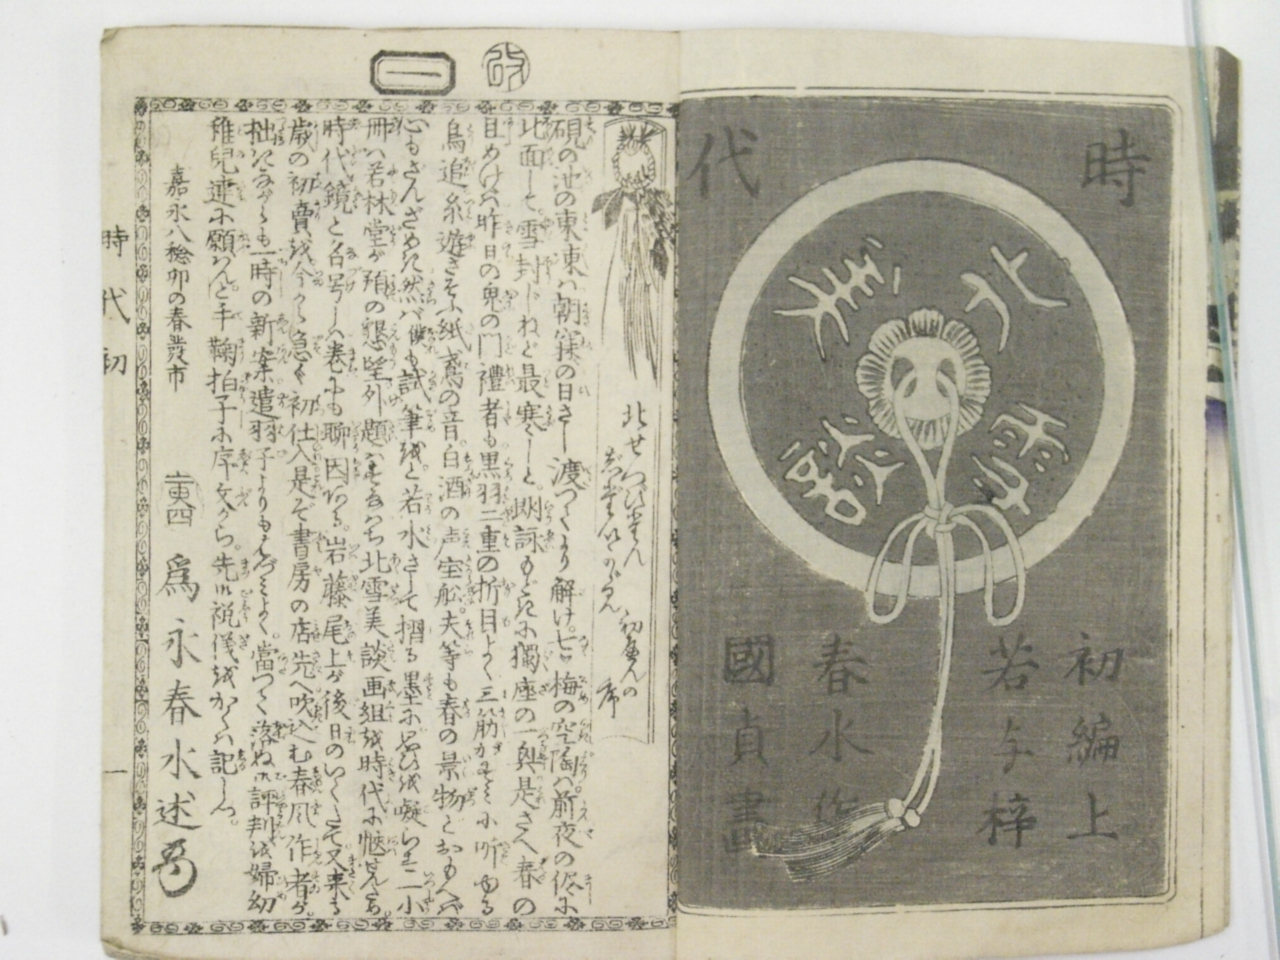 時代
北雪美談
初編上
若与梓
春水作
國貞畫
改
一
北せつびだん
初へんの
序
硯の池の東東は朝寐の日さし渡つてより解け。七ツ梅の空陶は前夜の侭に
北面して。雪封じねど最寒しと。朗詠もどきに獨座の一興是さへ春の
目めけば昨日の鬼の門禮者も黒羽二重の折目よく三筋
鳥追糸遊さそふ紙鳶の音。白酒の声宝舩。夫等も春の景物とおもへば
心もさんざめき然バ僕も試筆をと若水さして摺る墨に思ひを凝らす二小
冊ハ若林堂が預の懇望外題ハすなはち北雪美談画組を時代に
時代鏡と名号しハ巻中も聊因ある。岩藤尾上が後日のいくたて又来る
歳の初賣を今から急ぐ初仕入是ぞ書房の店先へ吹込む春風作者が。
拙きながらも一時の新案遣羽子よりも当つて落ねバ評判を婦幼
稚児達に願はんと手鞠拍子に序文から。先ハ祝儀をかくハ記しつ。
嘉永八稔卯の春發市
爲永春水述
時代初
一